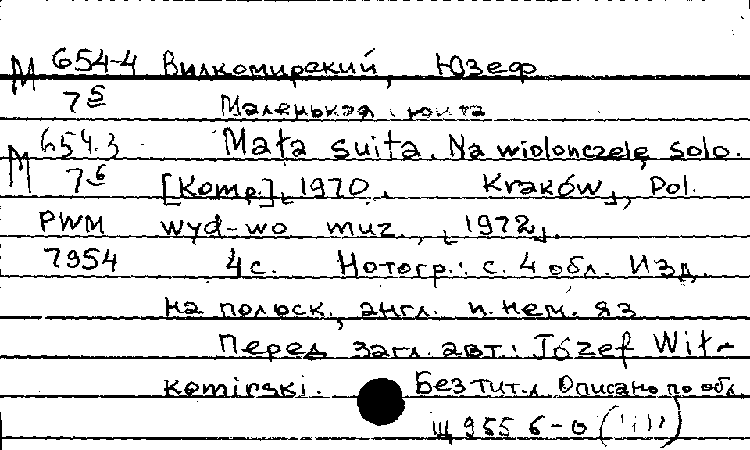 М 654-4 Вилкомирский, Юзеф
7⁵ Маленькая сюита
М 654.3 Mała suita. Na wiolonczelę solo.
7⁶ [Komp.], 1970. Kraków, Pol.
PWM wyd-wo muz., 1972.
7954 4 с. Нотогр.: с. 4 обл. Изд.
на польск., англ. и нем. яз
Перед загл. авт.: Józef Wił-
komirski. Без тит. л. Описано по обл.
Щ 955 6-0